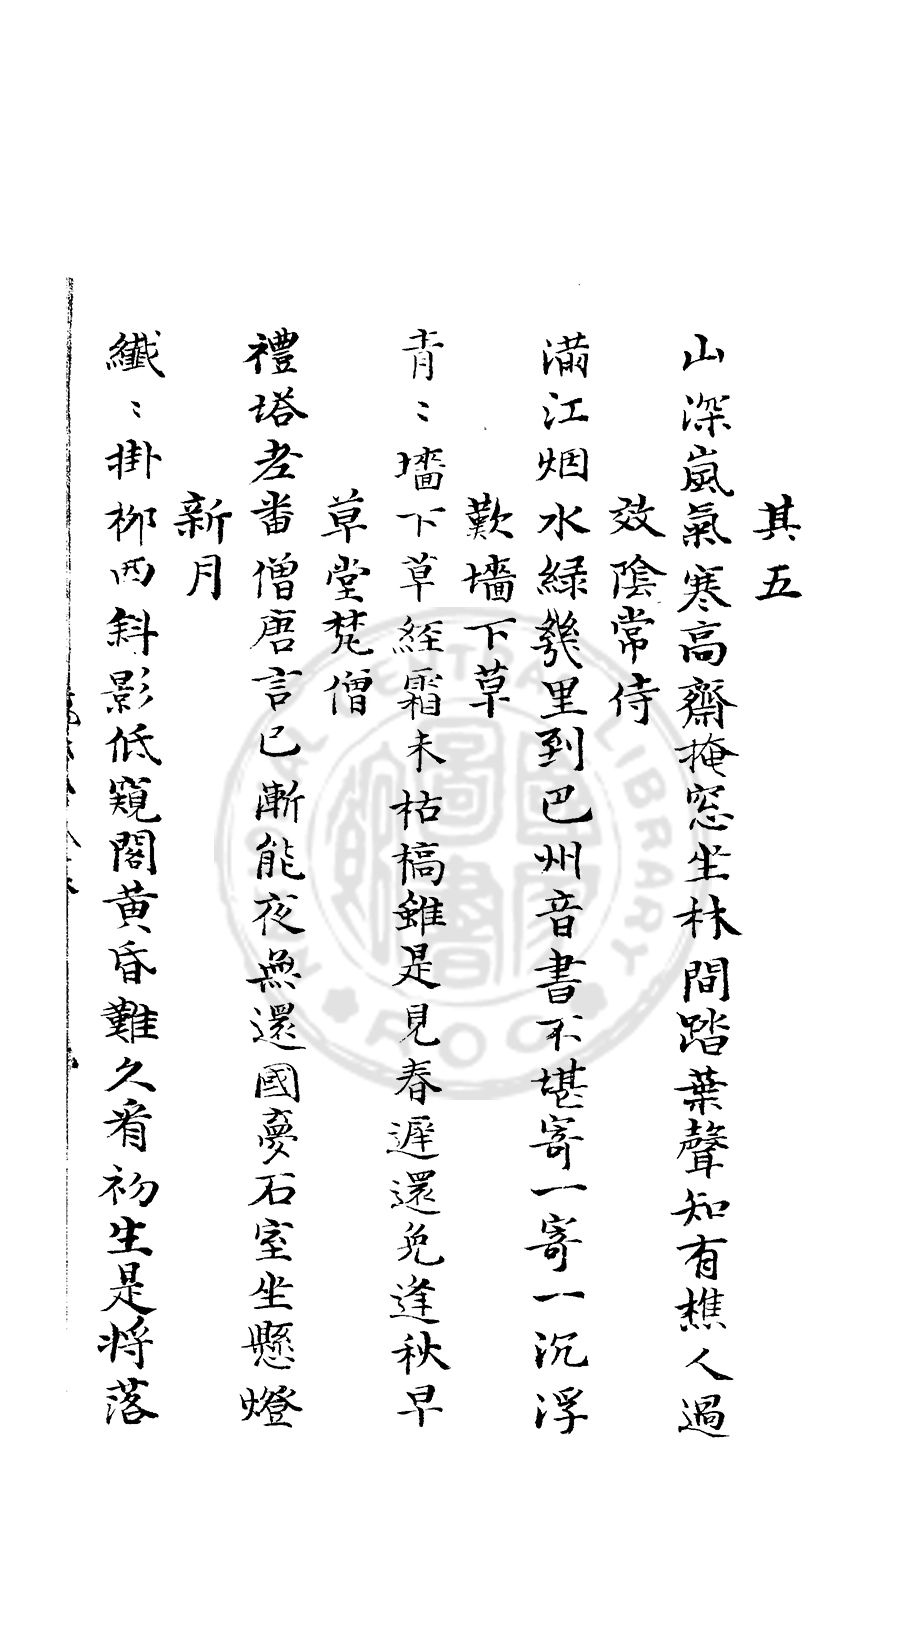 其五
山深嵐氣寒高齋掩窓坐林間踏葉聲知有樵人過
效陰常侍
滿江烟水緑幾里到巴州音書不堪寄一寄一沉浮
歎墻下草
青〻墻下草經霜未枯槁雖是見春遲還免逢秋早
草堂梵僧
禮塔老畨僧唐言已漸能夜無還國夢石室坐懸燈
新月
纖〻掛柳西斜影低窺閣黄昏難久看初生是将落